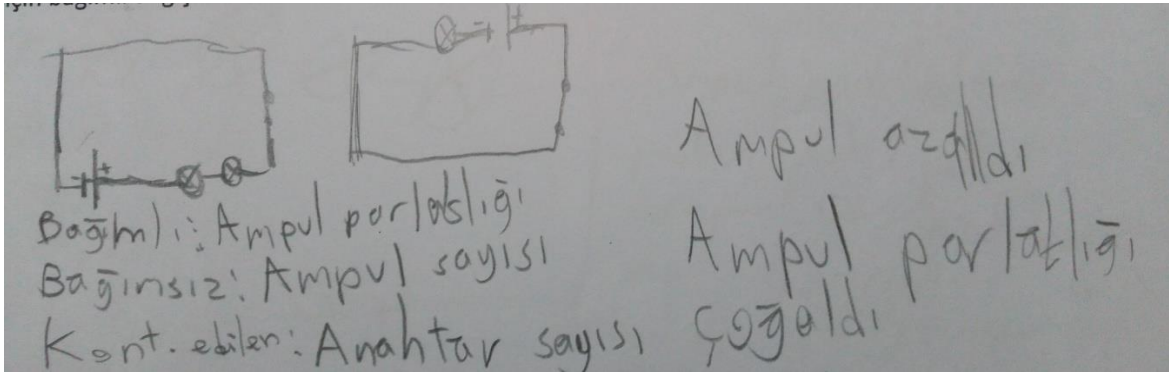 için
Bağımlı: Ampul parlatslığı
Bağımsız: Ampul sayısı
Kont. edilen: Anahtar sayısı
Ampul azaldı
Ampul parlatlığı
çoğaldı